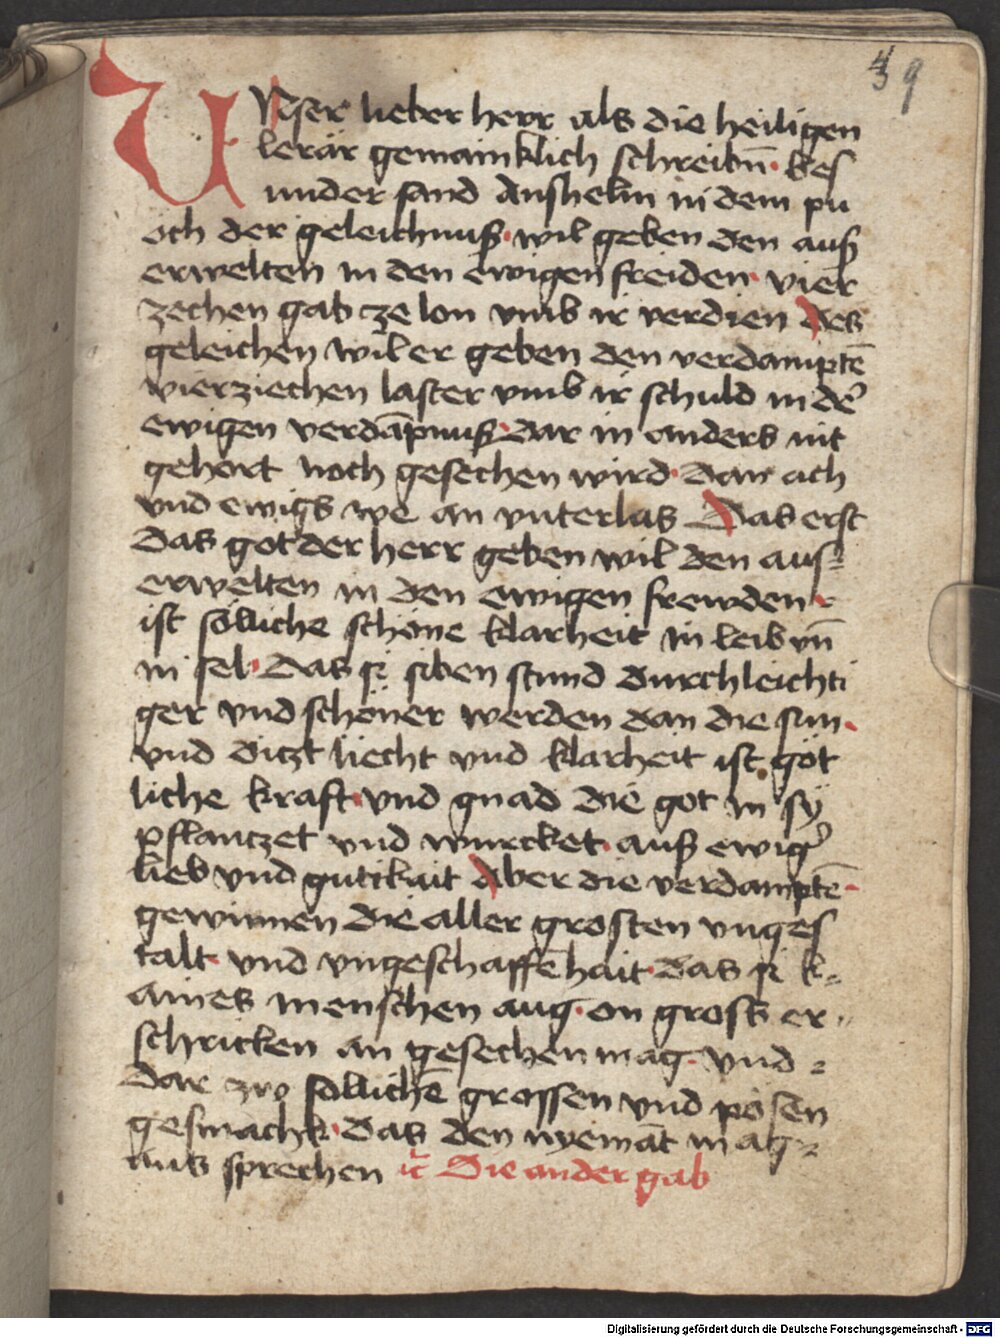 39
Unser lieber herr als die heiligen
lerär gemainklich schreibn̄. bes
under sand Anshelm in dem pu
och der geleichnuß. wil geben den auß
erwelten in den ewigen freiden. vier
zechen gab ze lon vmb ir verdien Des
geleichen wil er geben den verdamptē
vierziechen laster vmb ir schuld in der
ewigen verdāpnuß. Dar in anders nit
gehört noch gesechen wird. Dan ach
vnd ewigs we an vnterlas Das erst
Das got der herr geben wil den aus⸗
erwelten in den ewigen frewden.
ist sölliche schöne klarheit in leib vn̄
in sel. Das si siben stund durchleichti
ger vnd schöner werden dan die sun.
vnd ditzt liecht vnd klarheit ist göt
liche kraft. vnd gnad die got in sy
pflantzet vnd würcket. auß ewiger
lieb vnd gütikait Aber die verdamptē.
gewinnen die aller grosten vnges
talt. vnd vngeschaffēhait. das si k⸗
aines menschen aug. on gross er⸗
schricken an gesechen mag. vnd ⸗
Dar zuo söllichē grossen vnd pösen
gesmachk. Das den nyemāt mag⸗
aus sprechen ꝛc̄ Die ander gab
Digitalisierung gefördert durch die Deutsche Forschungsgemeinschaft - DFG